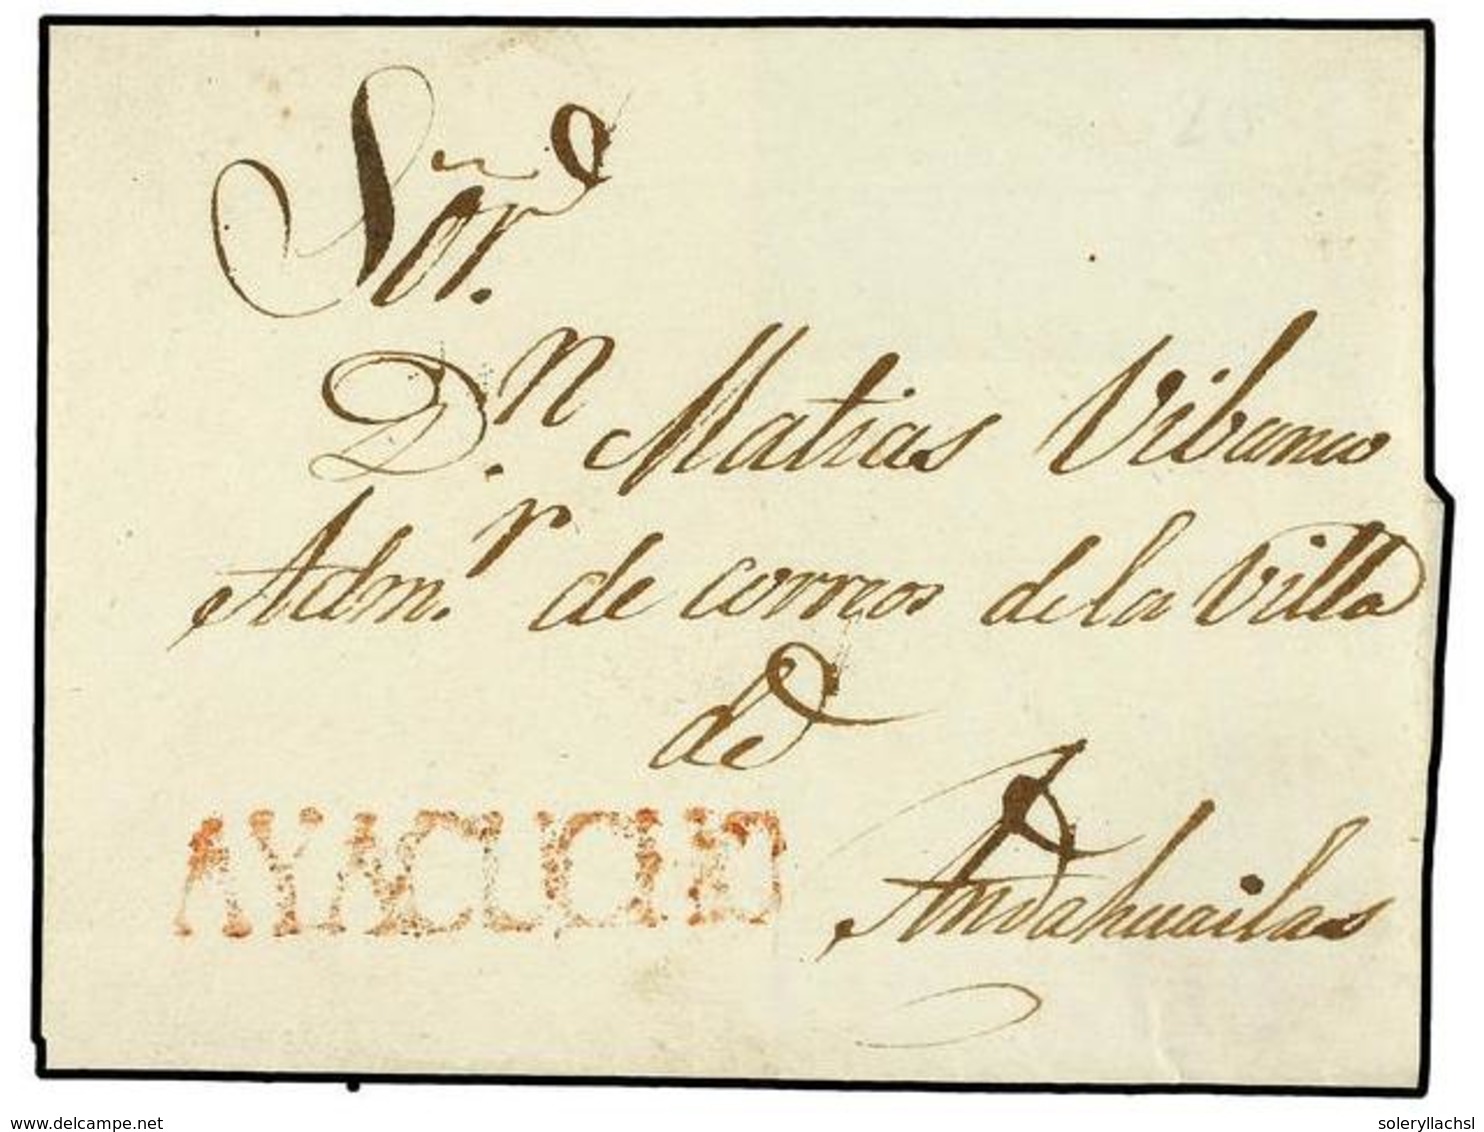 Sor.
Dn. Matias Vibanco
Admr. de correos de la Villa
de
Andahuailas
AYACUCHO
delcampe.net
soleryllachsl